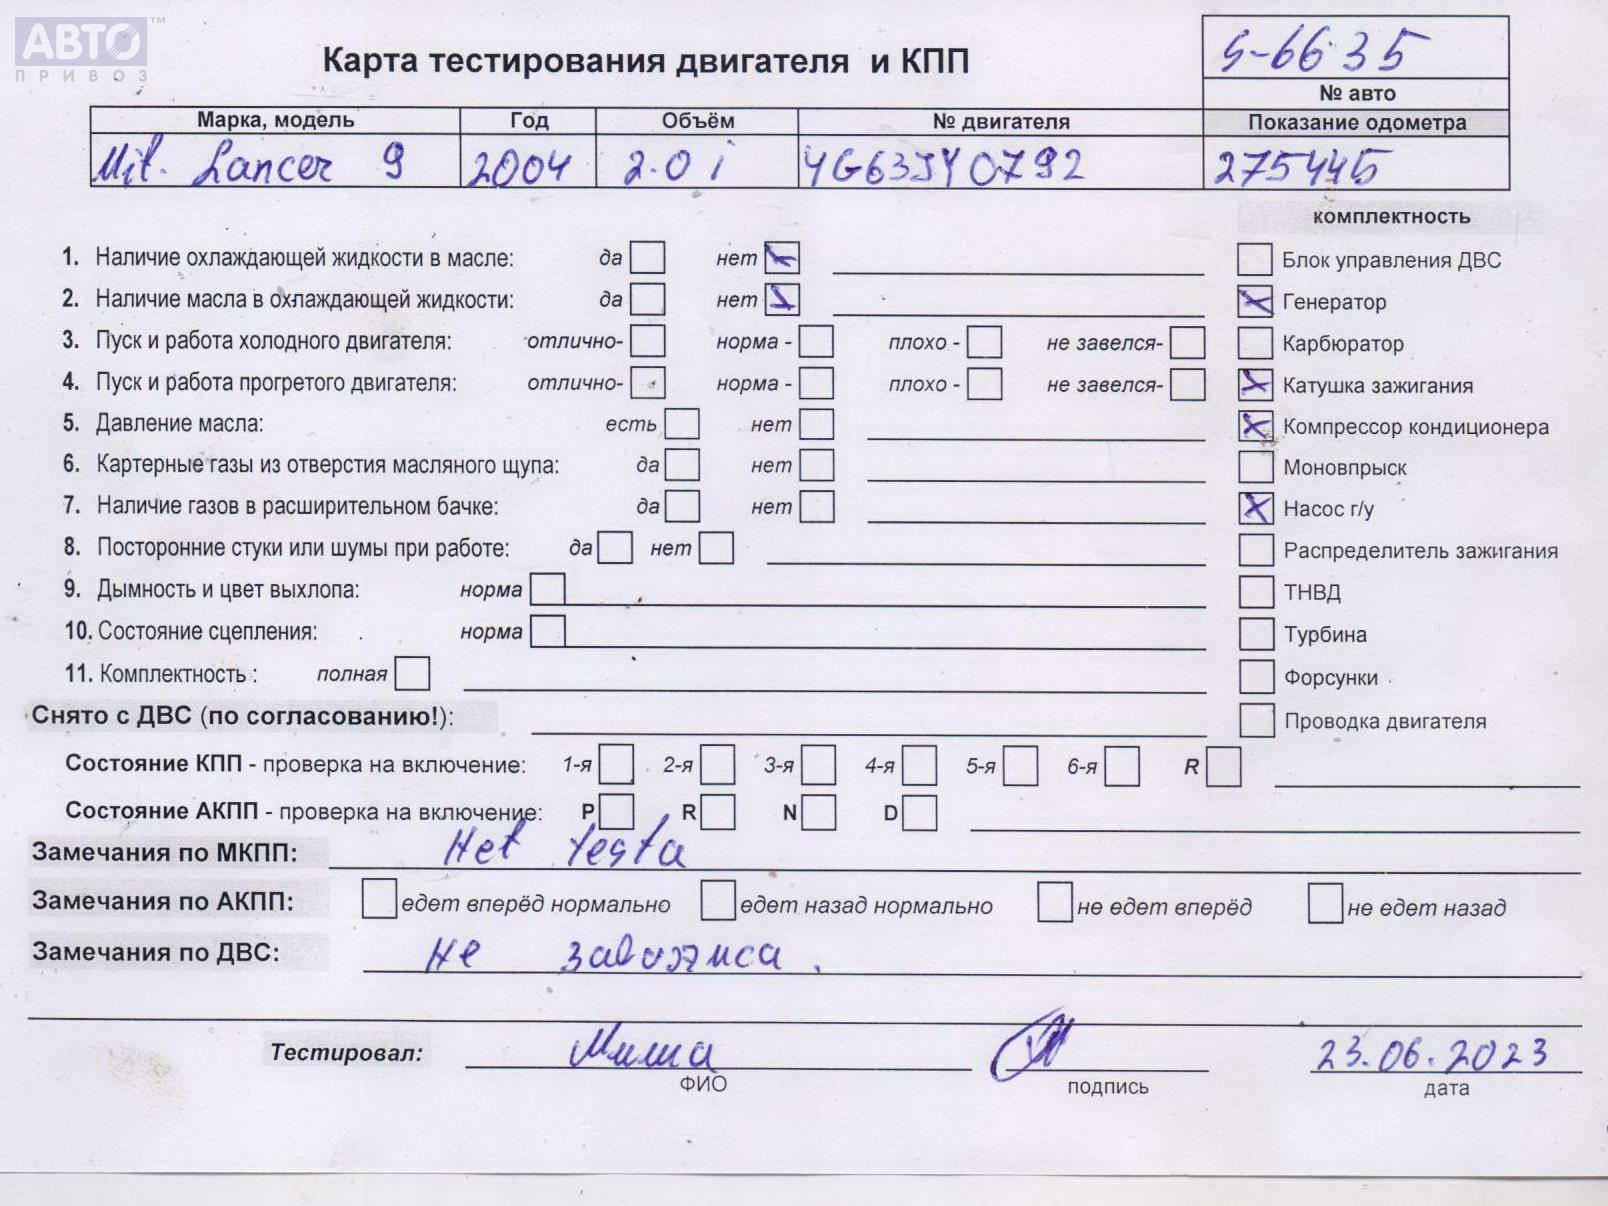 АВТО™
ПРИВОЗ
Карта тестирования двигателя и КПП
S-6635
№ авто
Марка, модель Год Объём № двигателя Показание одометра
Mit. Lancer 9 2004 2.0 i 4G63JY0792 275445
комплектность
1. Наличие охлаждающей жидкости в масле: да нет
Блок управления ДВС
2. Наличие масла в охлаждающей жидкости: да нет
Генератор
3. Пуск и работа холодного двигателя: отлично- норма - плохо - не завелся-
Карбюратор
4. Пуск и работа прогретого двигателя: отлично- норма - плохо - не завелся-
Катушка зажигания
5. Давление масла: есть нет
Компрессор кондиционера
6. Картерные газы из отверстия масляного щупа: да нет
Моновпрыск
7. Наличие газов в расширительном бачке: да нет
Насос г/у
8. Посторонние стуки или шумы при работе: да нет
Распределитель зажигания
9. Дымность и цвет выхлопа: норма
ТНВД
10. Состояние сцепления: норма
Турбина
11. Комплектность : полная
Форсунки
Снято с ДВС (по согласованию!):
Проводка двигателя
Состояние КПП - проверка на включение: 1-я 2-я 3-я 4-я 5-я 6-я R
Состояние АКПП - проверка на включение: P R N D
Замечания по МКПП: Нет теста
Замечания по АКПП: едет вперёд нормально едет назад нормально не едет вперёд не едет назад
Замечания по ДВС: не
Тестировал: Миша 23.06.2023
ФИО подпись дата